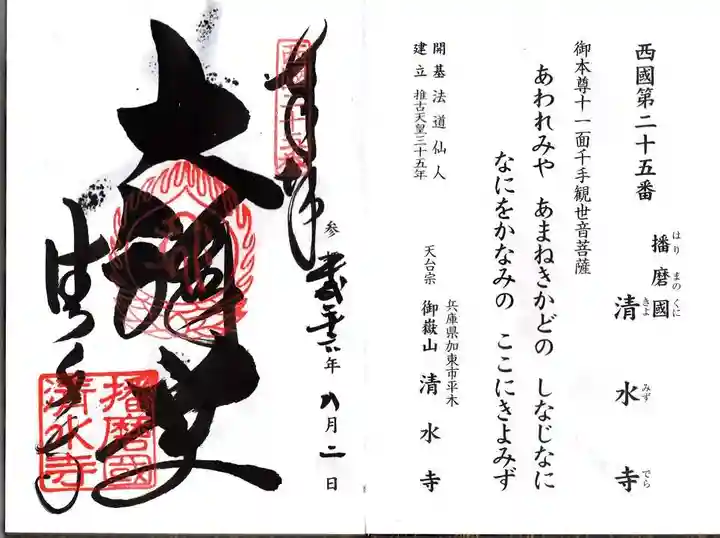 西國第二十五番
播磨國 清水寺
はり まの くに きよ みず でら
御本尊十一面千手観世音菩薩
あわれみや あまねきかどの しなじなに
なにをかなみの ここにきよみず
開基 法道仙人
建立 推古天皇三十五年
兵庫県加東市平木
天台宗 御嶽山 清水寺
奉拝
参 年 八月二日
大
清水寺
播磨國
清水寺